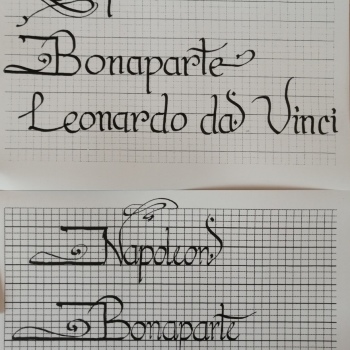 Bonaparte
Leonardo da Vinci
Napoleon
Bonaparte